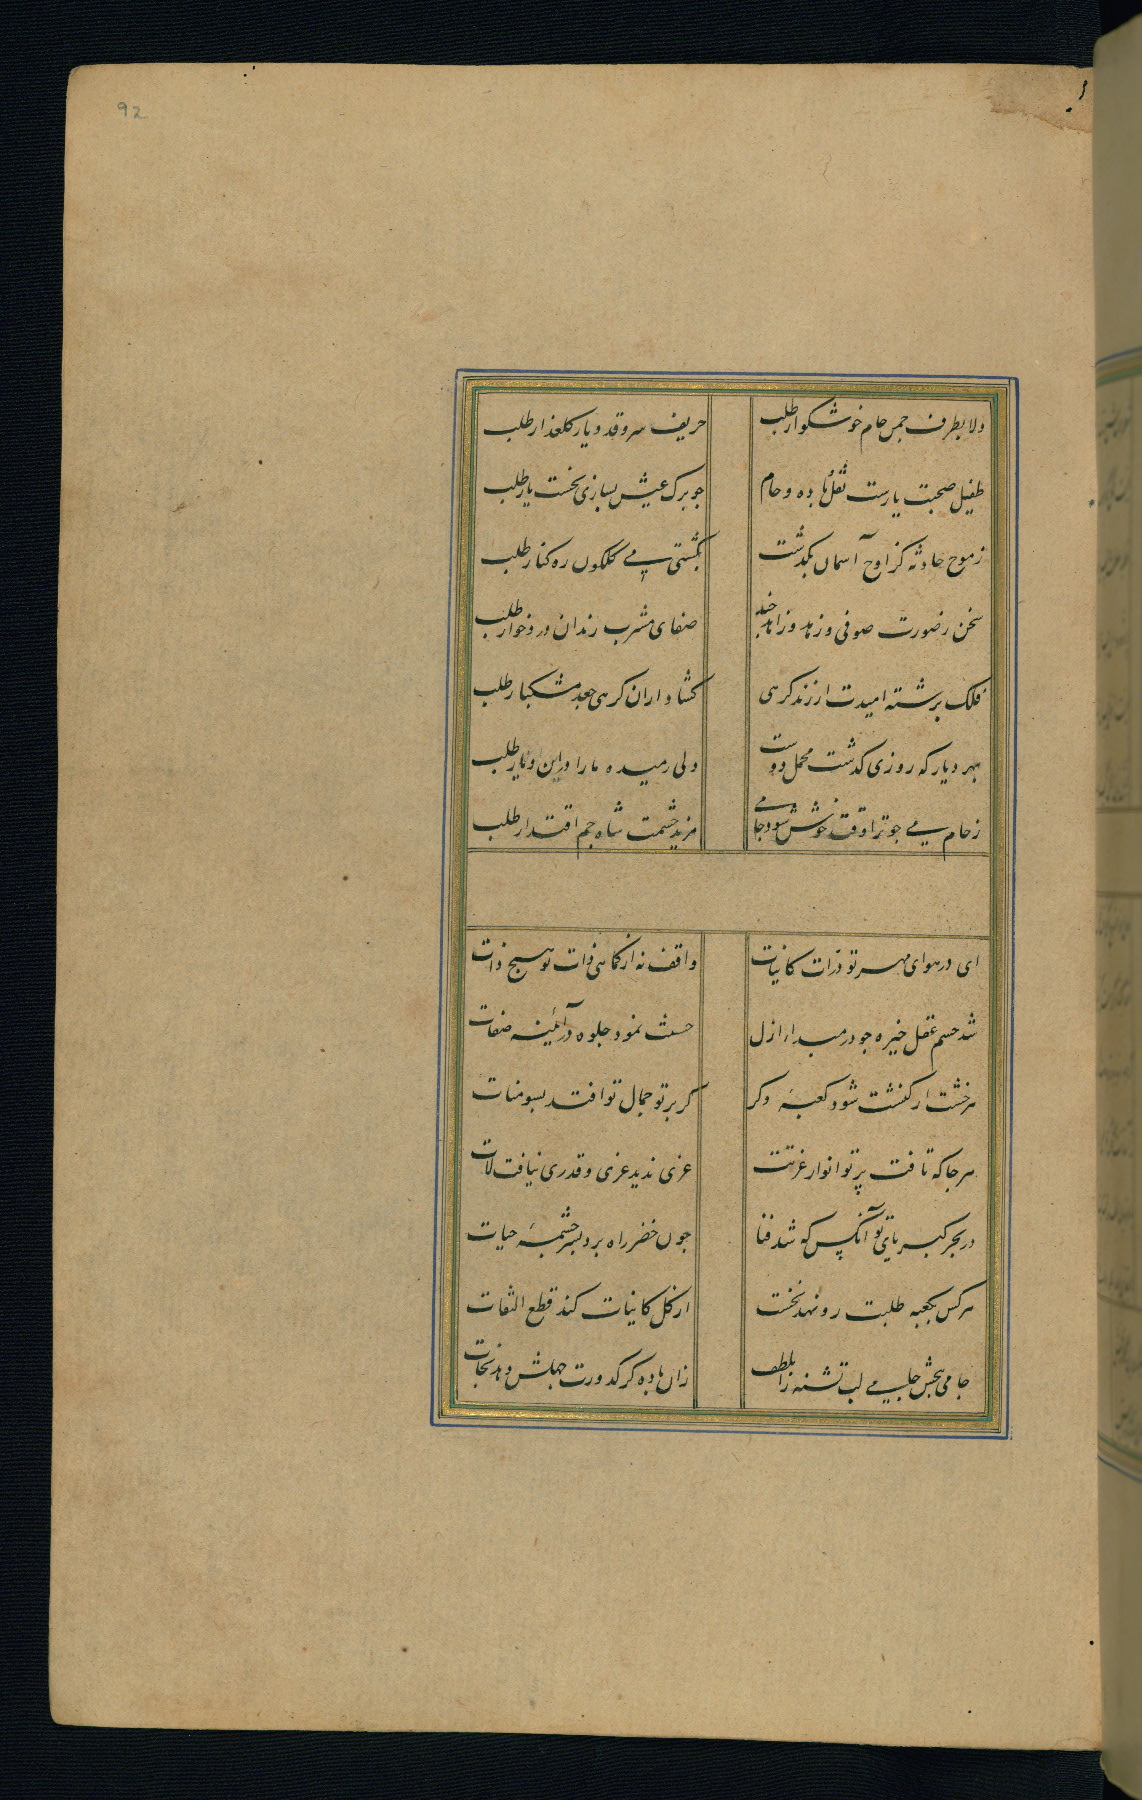 92
دلا بطرف چمن جام خوشکوار طلب حریف سرو قد و یار کلعذار طلب
طفیل صحبت یارست نقل و باده و جام چو برک عیش بسازی نخست یار طلب
ز موج حادثه کز اوج آسمان بگذشت بکشتی می کلکون ره کنار طلب
سخن ز صورت صوفی و زهد و زاهد چند صفای مشرب رندان درد خوار طلب
فلک برشته امیدت ار زند کرهی کشاد از ان کره جعد مشکبار طلب
بهر دیار که روزی کذشت محمل دوست دلی رمیده ما را در این دیار طلب
ز جام می چو ترا وقت خوش شود جامی مزید حشمت شاه جم اقتدار طلب
ای در هوای مهر تو ذرات کاینات واقف نه از کماهی ذات تو هیچ ذات
شد چشم عقل خیره چو در مبداء ازل حسنت نمود جلوه در آئینه صفات
هر خشت از کنشت شود کعبه دکر کر پرتو جمال تو افتد بسومنات
هر جا که تافت پرتو انوار عزتت عزی ندید عزی و قدری نیافت لات
در بحر کبریای تو آنکس که شد فنا چون خضر راه برد بسرچشمه حیات
هر کس بکعبه طلبت رو نهد نخست از کل کاینات کند قطع التفات
جامی ببخش جامی لب تشنه را بلطف زان باده کز کدورت جهلش دهد نجات